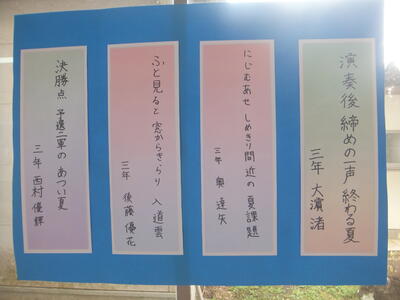 演奏後 締めの一声 終わる夏
三年 大濵 渚
にじむあせ しめきり間近の 夏課題
三年 奥 達矢
ふと見ると 窓からきらり 入道雲
三年 後藤 優花
決勝点 予選二軍の あつい夏
三年 西村 優輝